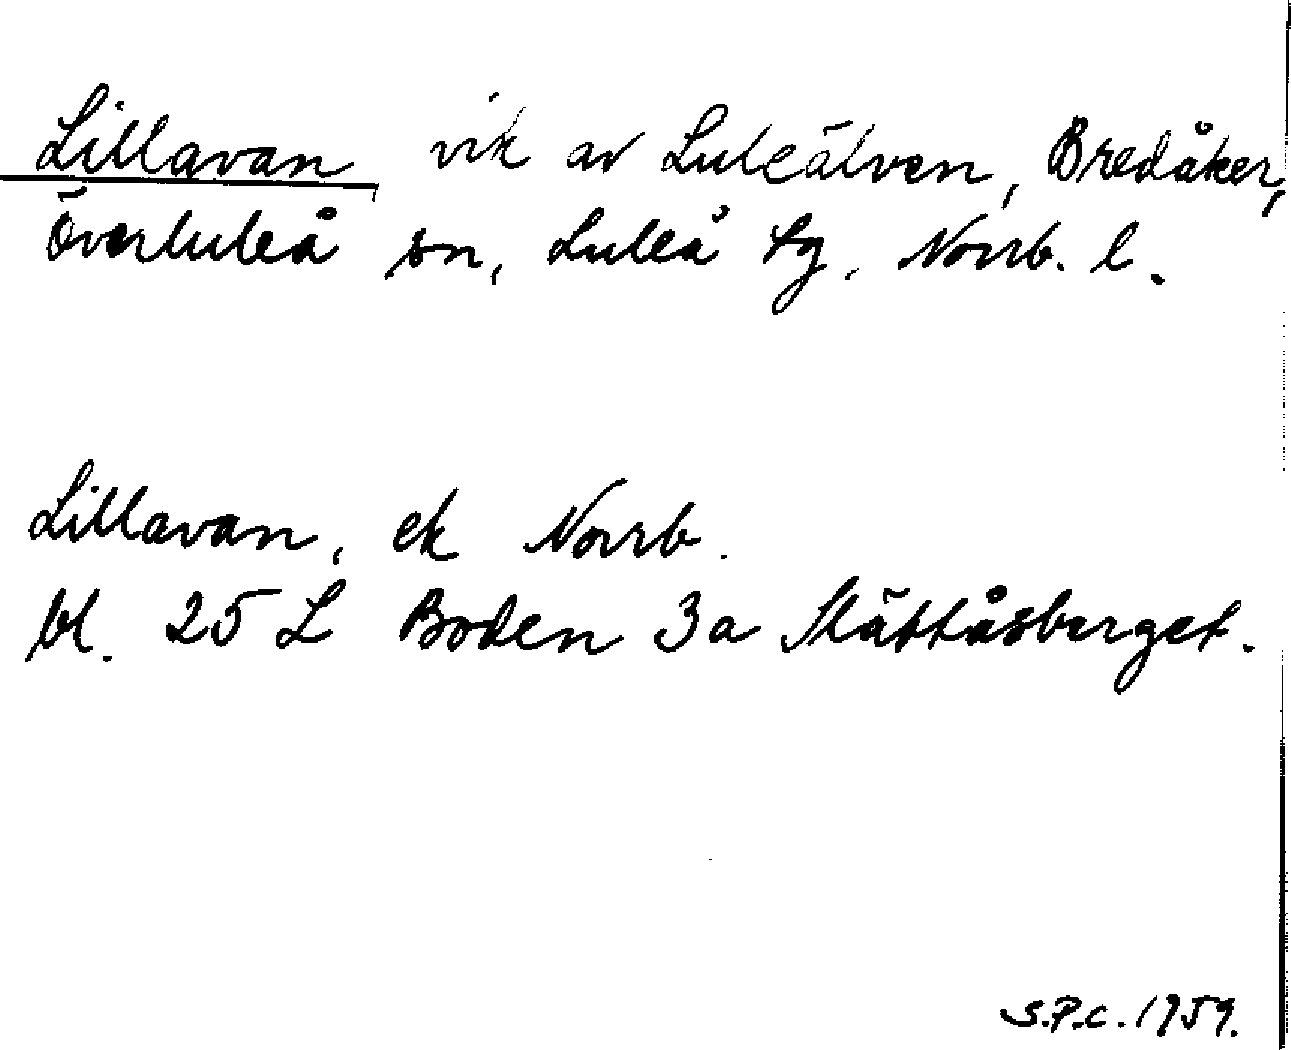 Lillavan, vik av Luleälven, Bredåker,
Överluleå sn, Luleå tg, Norrb. l.
Lillavan, ek Norrb.
bl. 25 L Boden 3a Slättåsberget.
S.P.C. 1959.